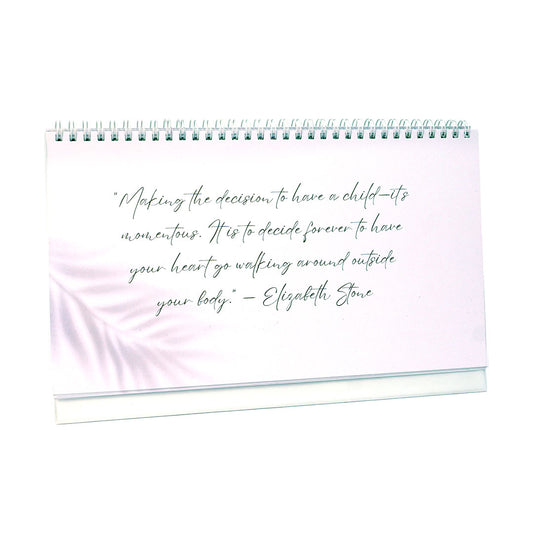 "Making the decision to have a child—it's
momentous. It is to decide forever to have
your heart go walking around outside
your body." — Elizabeth Stone